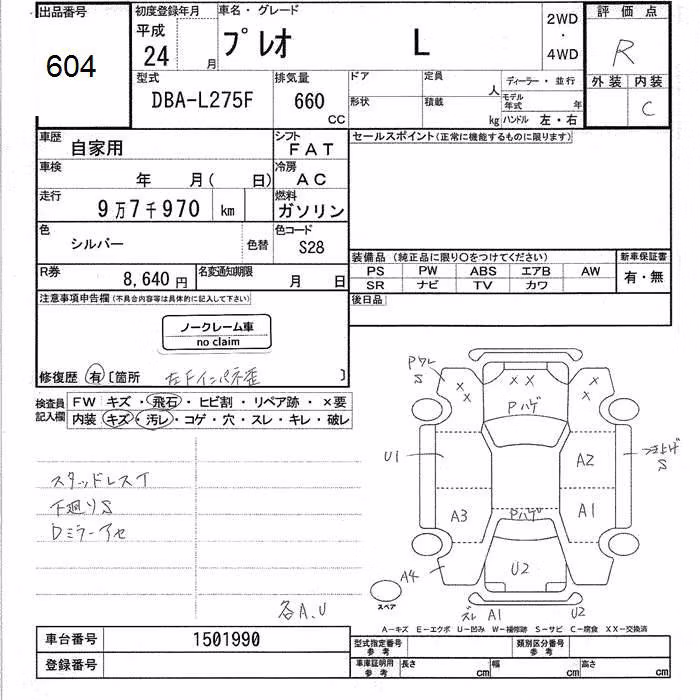 出品番号
604
初度登録年月
平成
24 月
車名・グレード
プレオ L
2WD
・
4WD
評価点
R
外装 内装
C
型式
DBA-L275F
排気量
660
CC
ドア
定員
人
ディーラー・並行
形状
積載
kg
モデル年式
年
ハンドル 左・右
車歴
自家用
シフト
FAT
セールスポイント(正常に機能するものに限ります)
車検
年 月( 日)
冷房
AC
走行
9万7千970 km
燃料
ガソリン
色
シルバー
色替
色コード
S28
装備品 (純正品に限り○をつけてください)
新車保証書
PS PW ABS エアB AW
有・無
SR ナビ TV カワ
R券
8,640円
名変通知期限
月 日
後日品
注意事項申告欄(不具合内容等は具体的に記入して下さい)
ノークレーム車
no claim
修復歴 有 [箇所 左Fインパネ歪 ]
検査員
記入欄
FW キズ・飛石・ヒビ割・リペア跡・×要
内装 キズ・汚レ・コゲ・穴・スレ・キレ・破レ
スタッドレスT
下廻りS
Dミラーアセ
各A.U
Pワレ
S
× ×
× ×
× ×
Pハゲ
U1
A2
つき上げ
S
A3
Pハゲ
A1
A4
U2
スペア
ズレ A1
U2
A-キズ E-エクボ U-凹み W-補修跡 S-サビ C-腐食 XX-交換済
車台番号
1501990
登録番号
型式指定番号
参考
類別区分番号
参考
車庫証明用
参考
長さ cm
幅 cm
高さ cm